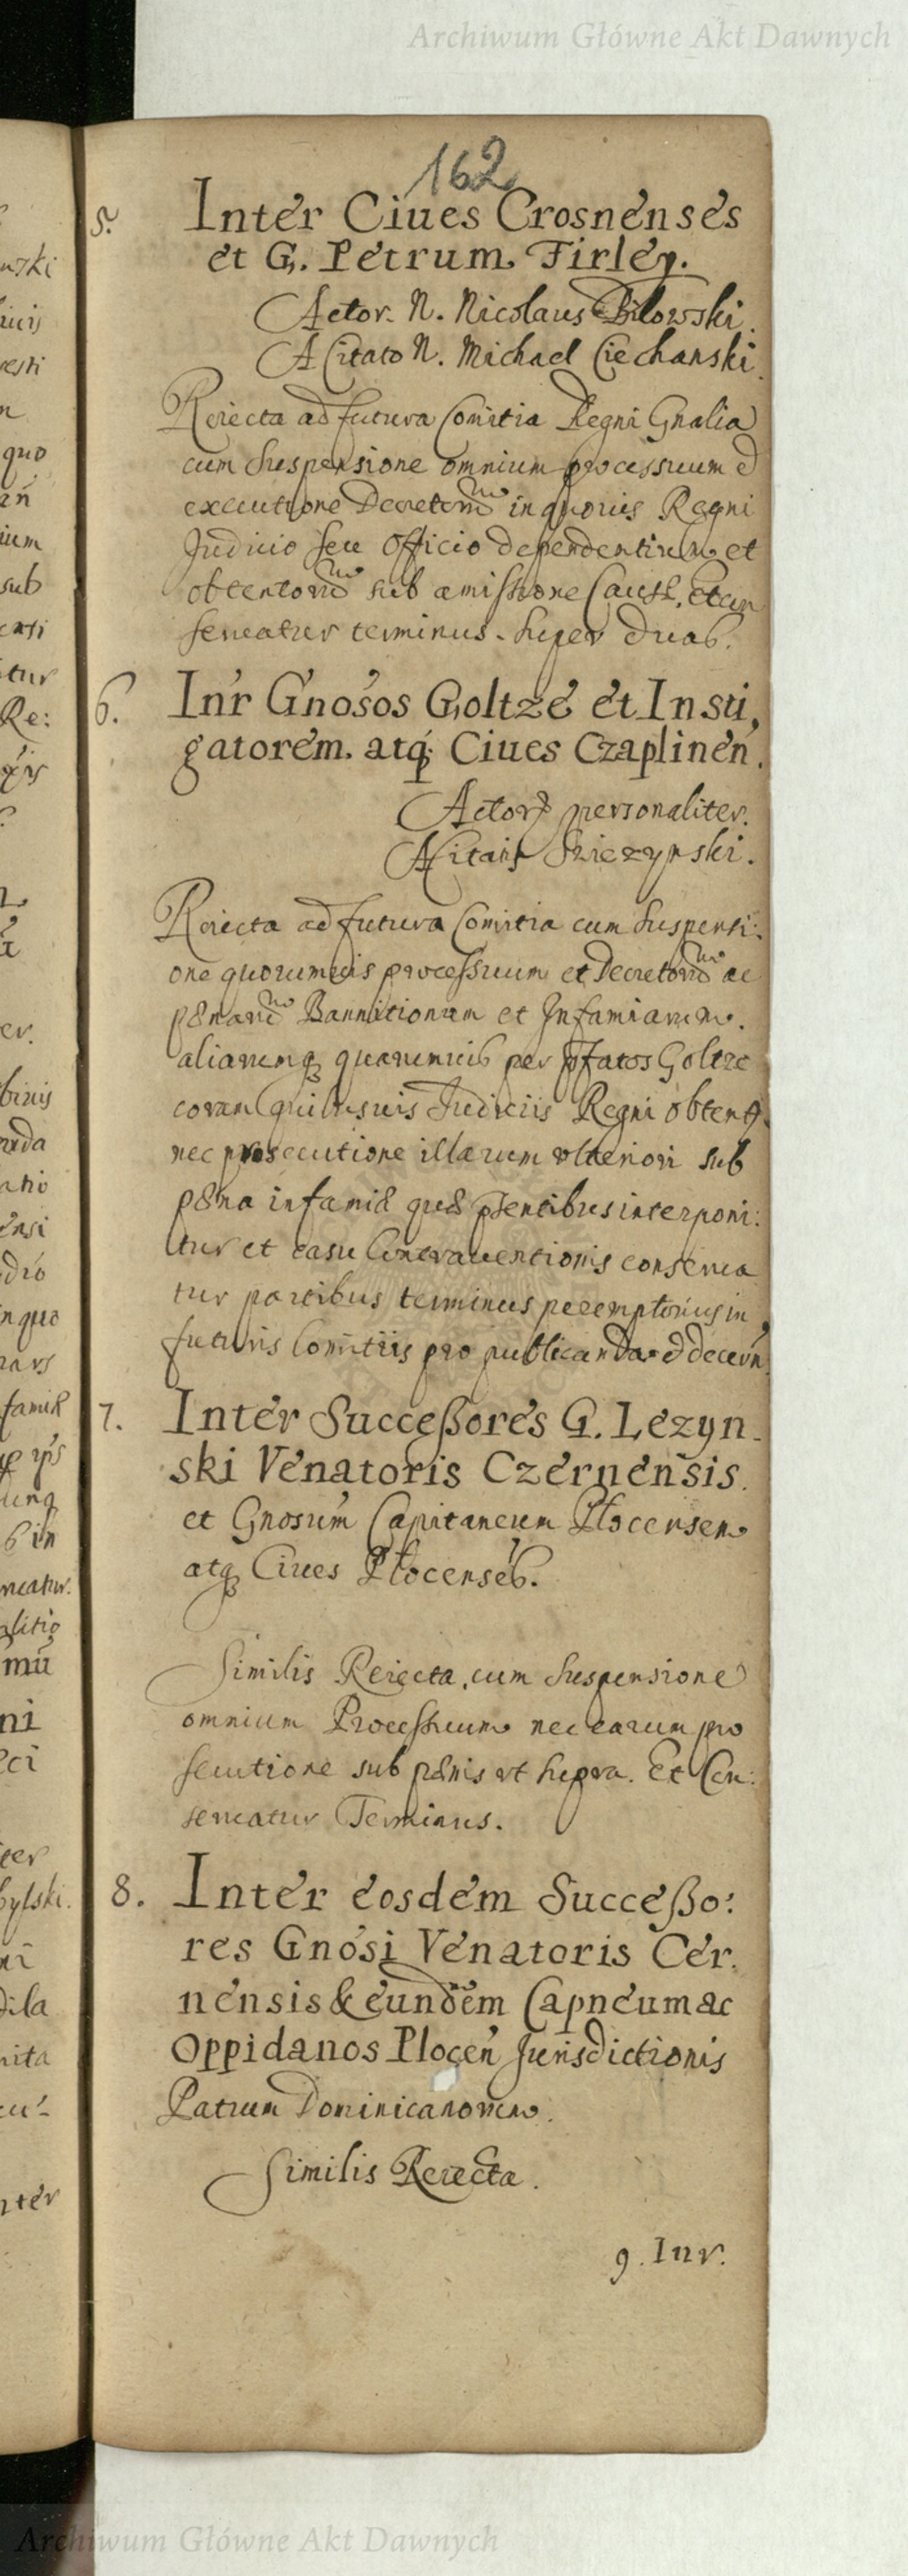 Archiwum Główne Akt Dawnych
162
5. Inter Ciues Crosnenses
et G. Petrum Firley.
Actor. N. Nicolaus Bilowski.
A Citato N. Michael Ciechanski.
Reiecta ad futura Comitia Regni Gnalia
cum suspensione omnium processuum et
executione Decretorum in quouis Regni
Judicio seu Officio dependentium et
obtentorum sub amissione Causæ, Et con
seruatur terminus super duab.
6. Inr Gnosos Goltze et Insti,
gatorem. atq; Ciues Czaplinen.
Actor personaliter.
A Citatis
Reiecta ad futura Comitia cum suspensi:
one quorumuis processuum et Decretorum ac
pænarum Bannitionum et Infamiarum.
aliarumq; quarumuis per pfatos Goltze
coram quibusuis Judiciis Regni obtent
nec prosecutione illarum vlteriori sub
pæna infamiæ quæ pñtibus interponi:
tur et casu Contrauentionis conserua
tur partibus terminus peremptorius in
futuris Comitiis pro publicanda et decern
7. Inter Succeßores G. Lezyn.
ski Venatoris Czernensis.
et Gnosum Capitaneum Plocensem
atq; Ciues Plocenses.
Similis Reiecta, cum suspensione
omnium Processuum nec earum pro
secutione sub pænis vt supra. Et Con:
seruatur Terminus.
8. Inter eosdem Succeßo:
res Gnosi Venatoris Cer.
nensis & eundem Capneum ac
Oppidanos Plocen Jurisdictionis
Patrum Dominicanorum.
Similis Reiecta.
9. Inr.
Archiwum Główne Akt Dawnych